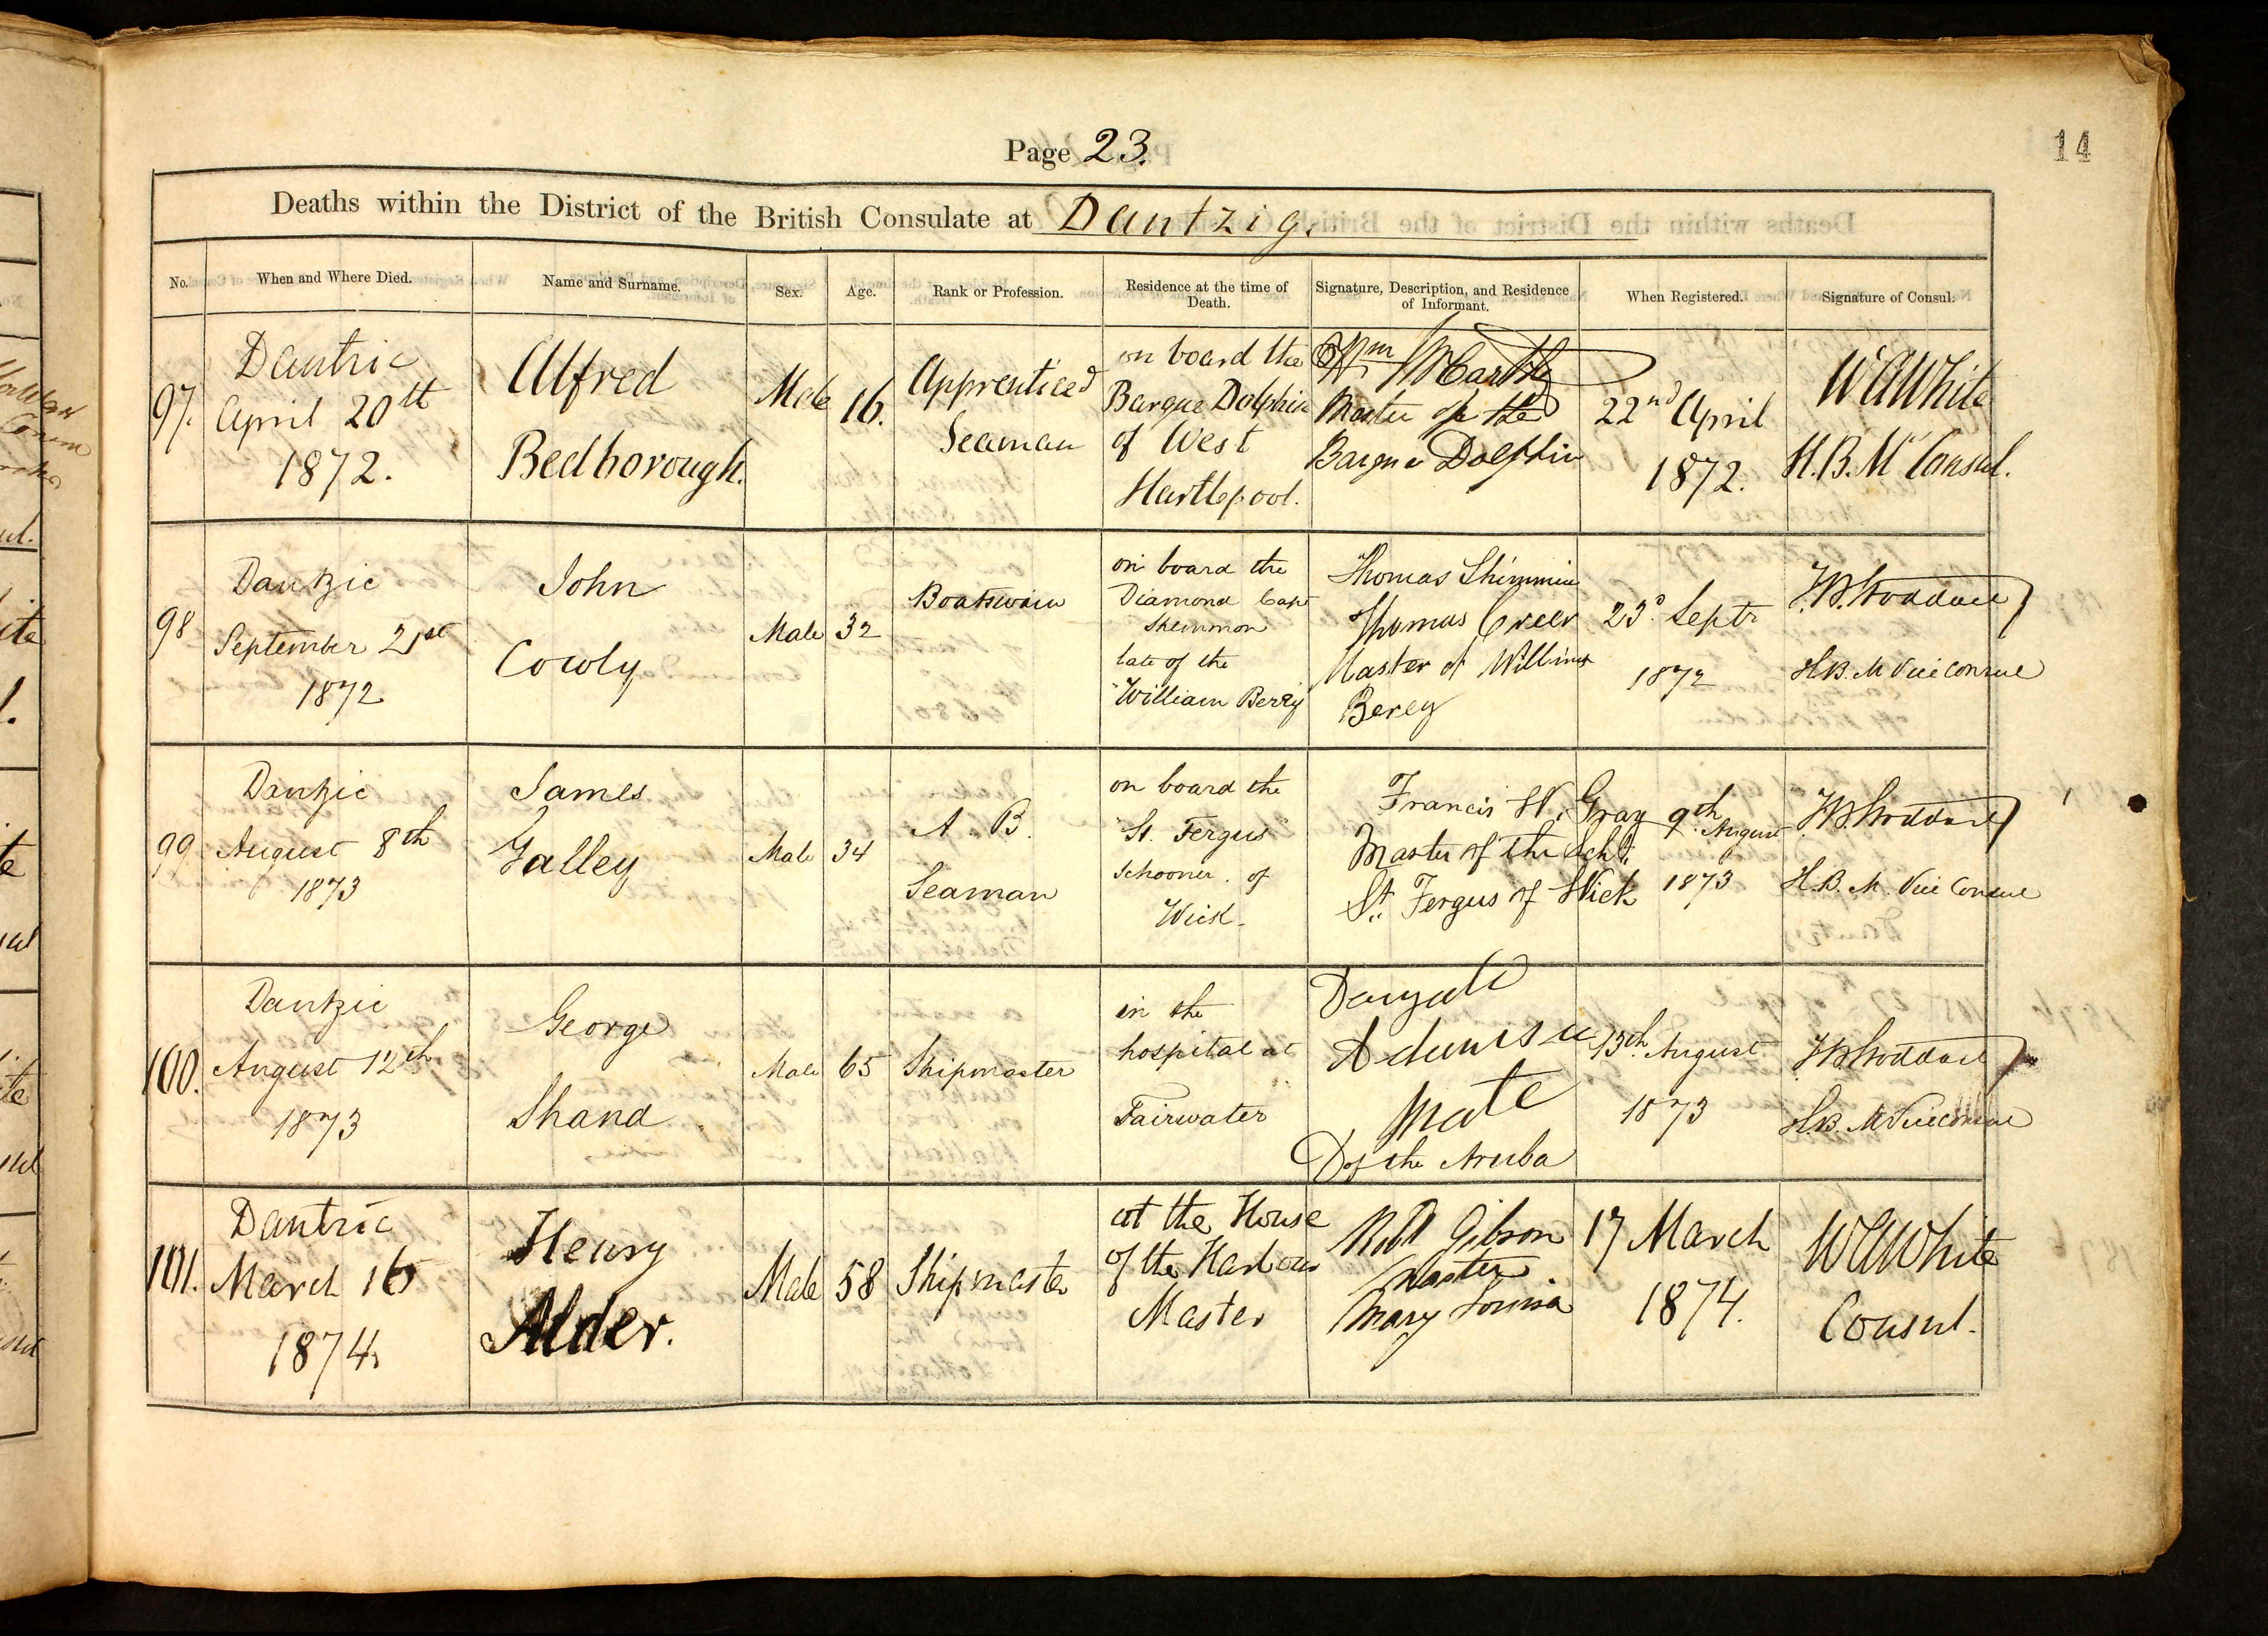 Page 23.
14
Deaths within the District of the British Consulate at Dantzig.
No.
When and Where Died.
Name and Surname.
Sex.
Age.
Rank or Profession.
Residence at the time of
Death.
Signature, Description, and Residence
of Informant.
When Registered.
Signature of Consul.
97.
Dantzic
April 20th
1872.
Alfred
Bedborough.
Male
16.
Apprenticed
Seaman
on board the
Barque Dolphin
of West
Hartlepool.
Wm
Master of the
Barque Dolphin
22nd April
1872.
WAWhite
H.B.M Consul.
98
Dantzic
September 21st
1872
John
Cowly
Male
32
Boatswain
on board the
Diamond Capt
Shimmon
late of the
"William Berry"
Thomas Shimmin
Thomas Creer
Master of William
Berey
23d Septr
1872
H.B.M Vice Consul
99
Dantzic
August 8th
1873
James
Galley
Male
34
A. B.
Seaman
on board the
"St. Fergus"
Schooner of
Wick
Francis W. Gray
Master of the Schr
St. Fergus of Wick
9th August
1873
H.B.M. Vice Consul
100.
Dantzic
August 12th
1873
George
Shand
Male
65
Shipmaster
in the
hospital at
Fairwater
Mate
of the Aruba
13th August
1873
H.B. M Vice Consul
101.
Dantzic
March 16
1874
Henry
Alder.
Male
58
Shipmaster
at the House
of the Harbour
Master
Robt Gibson
Master
Mary Louisa
17 March
1874.
WAWhite
Consul.